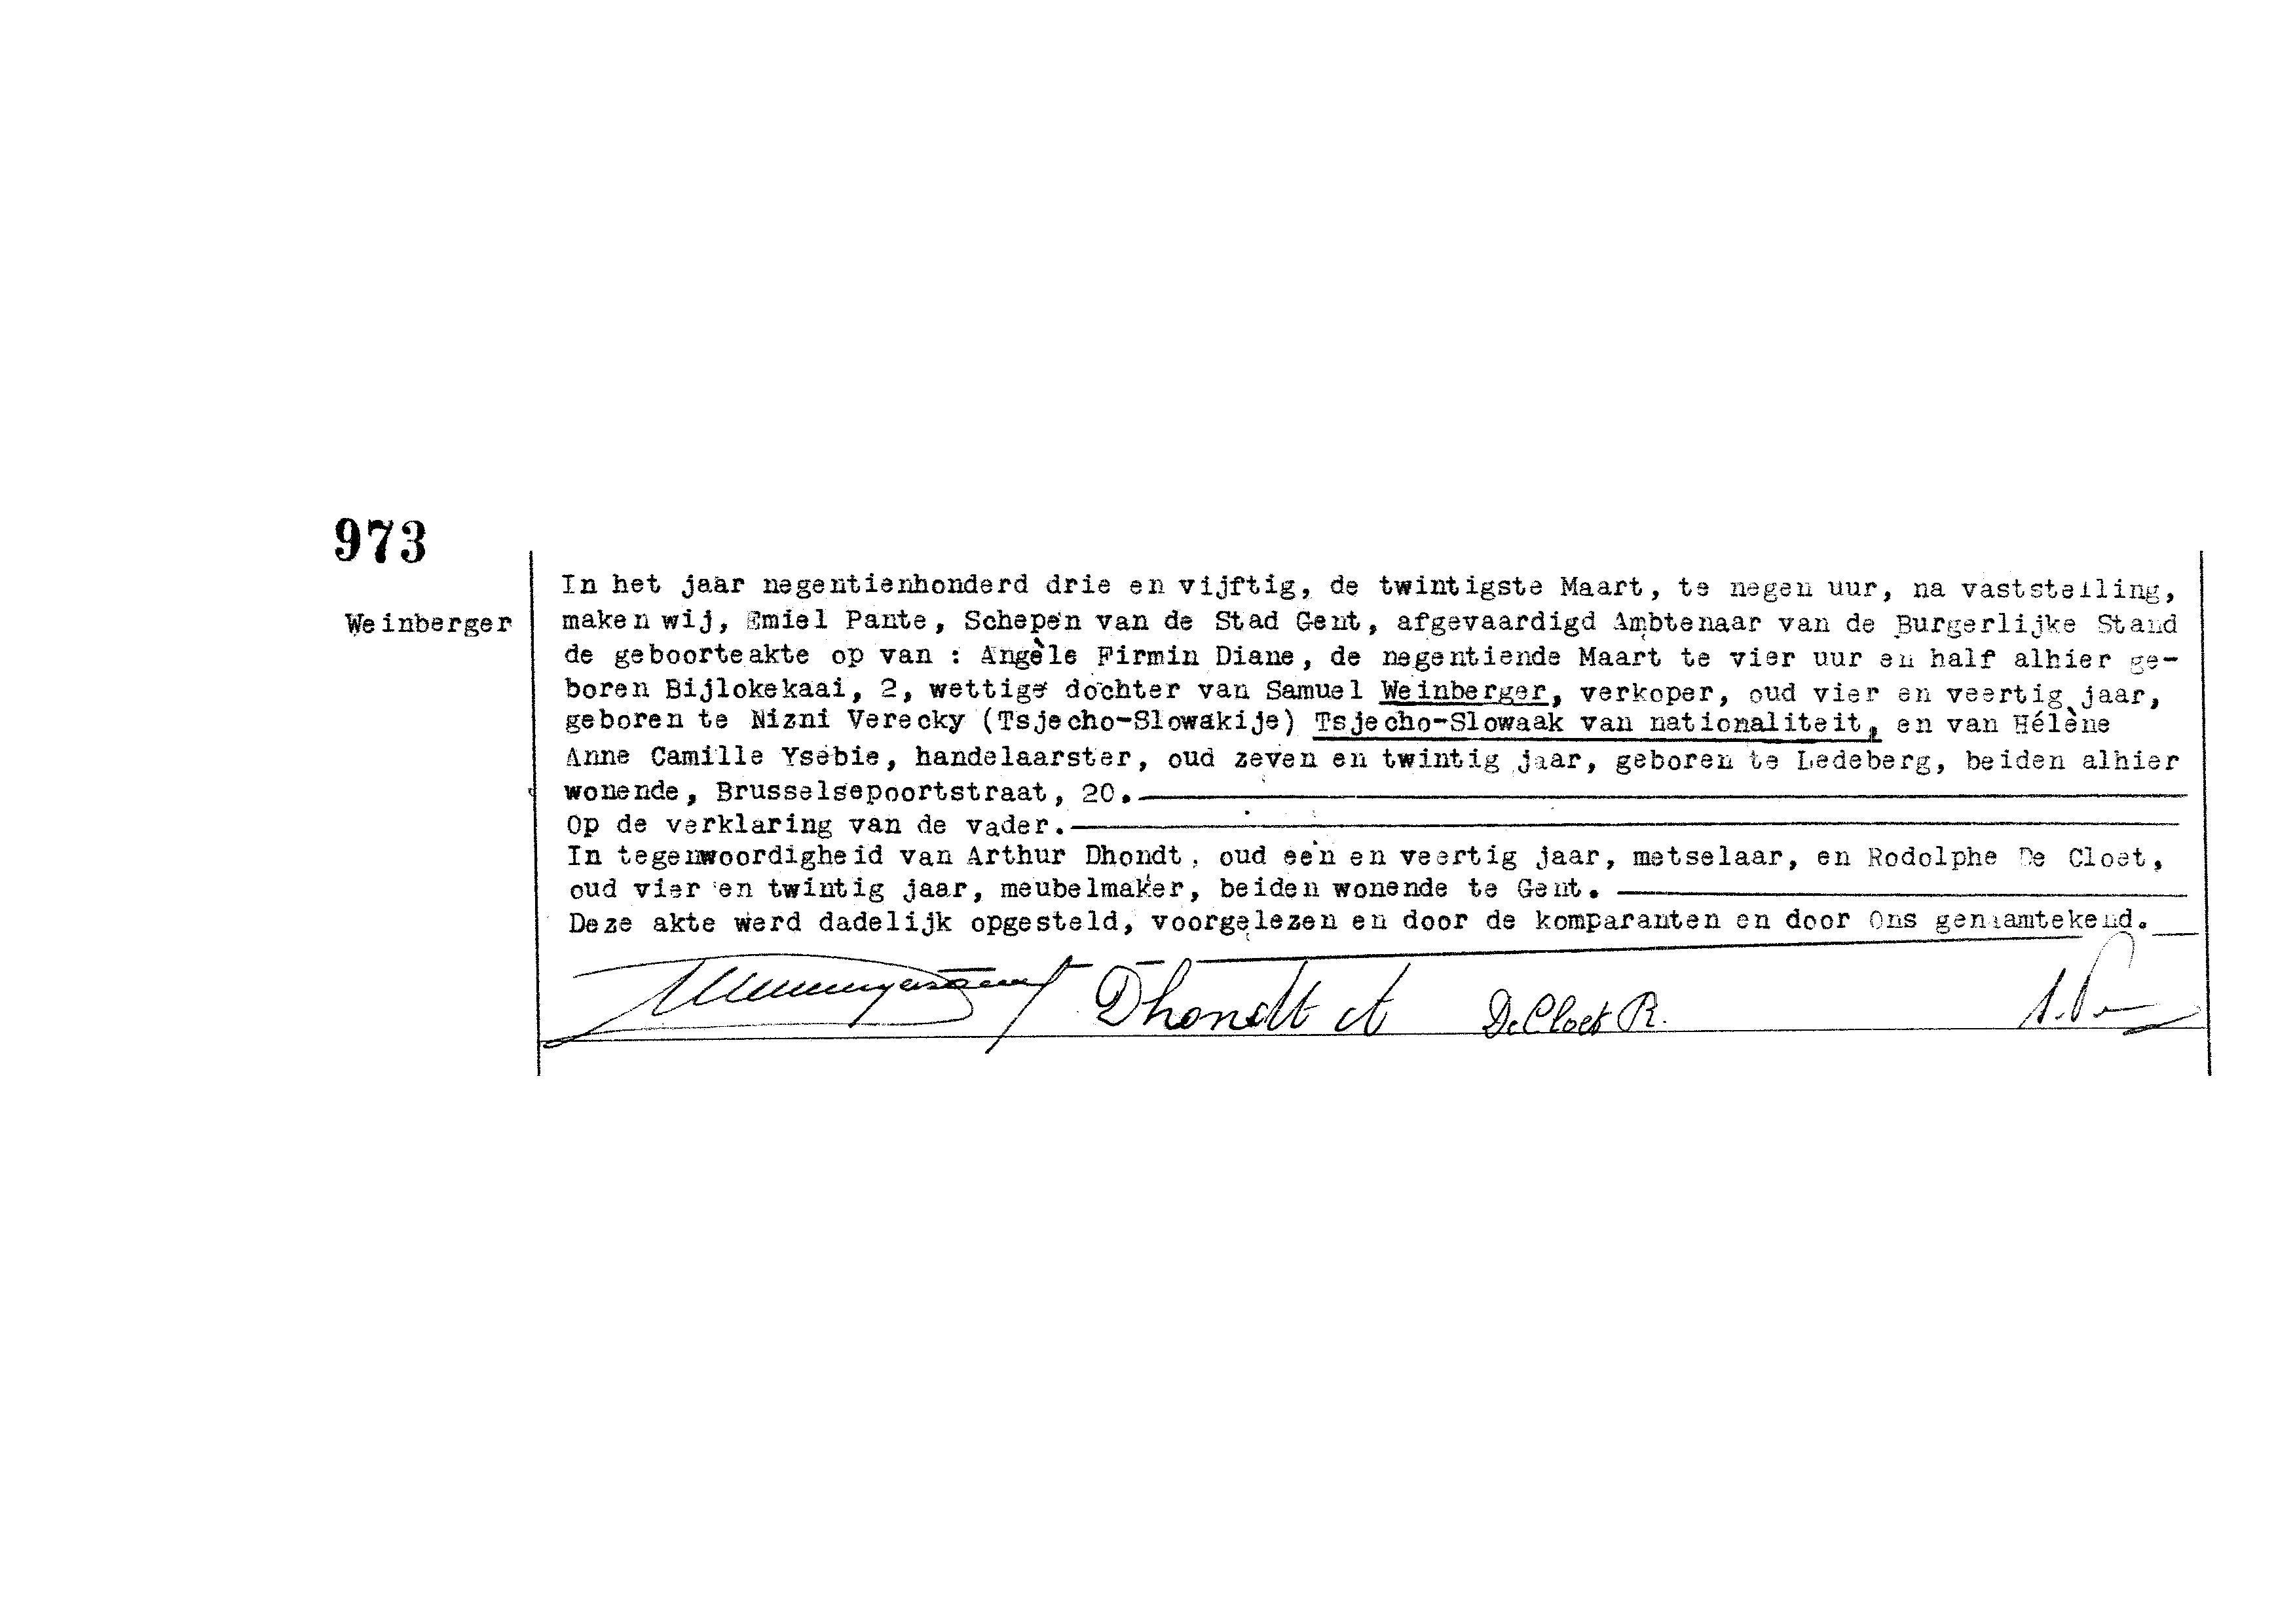 973
Weinberger
In het jaar negentienhonderd drie en vijftig, de twintigste Maart, te negen uur, na vaststelling,
maken wij, Emiel Pante, Schepen van de Stad Gent, afgevaardigd Ambtenaar van de Burgerlijke Stand
de geboorteakte op van : Angèle Firmin Diane, de negentiende Maart te vier uur en half alhier ge-
boren Bijlokekaai, 2, wettige dochter van Samuel Weinberger, verkoper, oud vier en veertig jaar,
geboren te Nizni Verecky (Tsjecho-Slowakije) Tsjecho-Slowaak van nationaliteit, en van Hélène
Anne Camille Ysebie, handelaarster, oud zeven en twintig jaar, geboren te Ledeberg, beiden alhier
wonende, Brusselsepoortstraat, 20.
Op de verklaring van de vader.
In tegenwoordigheid van Arthur Dhondt, oud een en veertig jaar, metselaar, en Rodolphe De Cloet,
oud vier en twintig jaar, meubelmaker, beiden wonende te Gent.
Deze akte werd dadelijk opgesteld, voorgelezen en door de komparanten en door Ons genaamtekend.
Dhondt A De Cloet R.